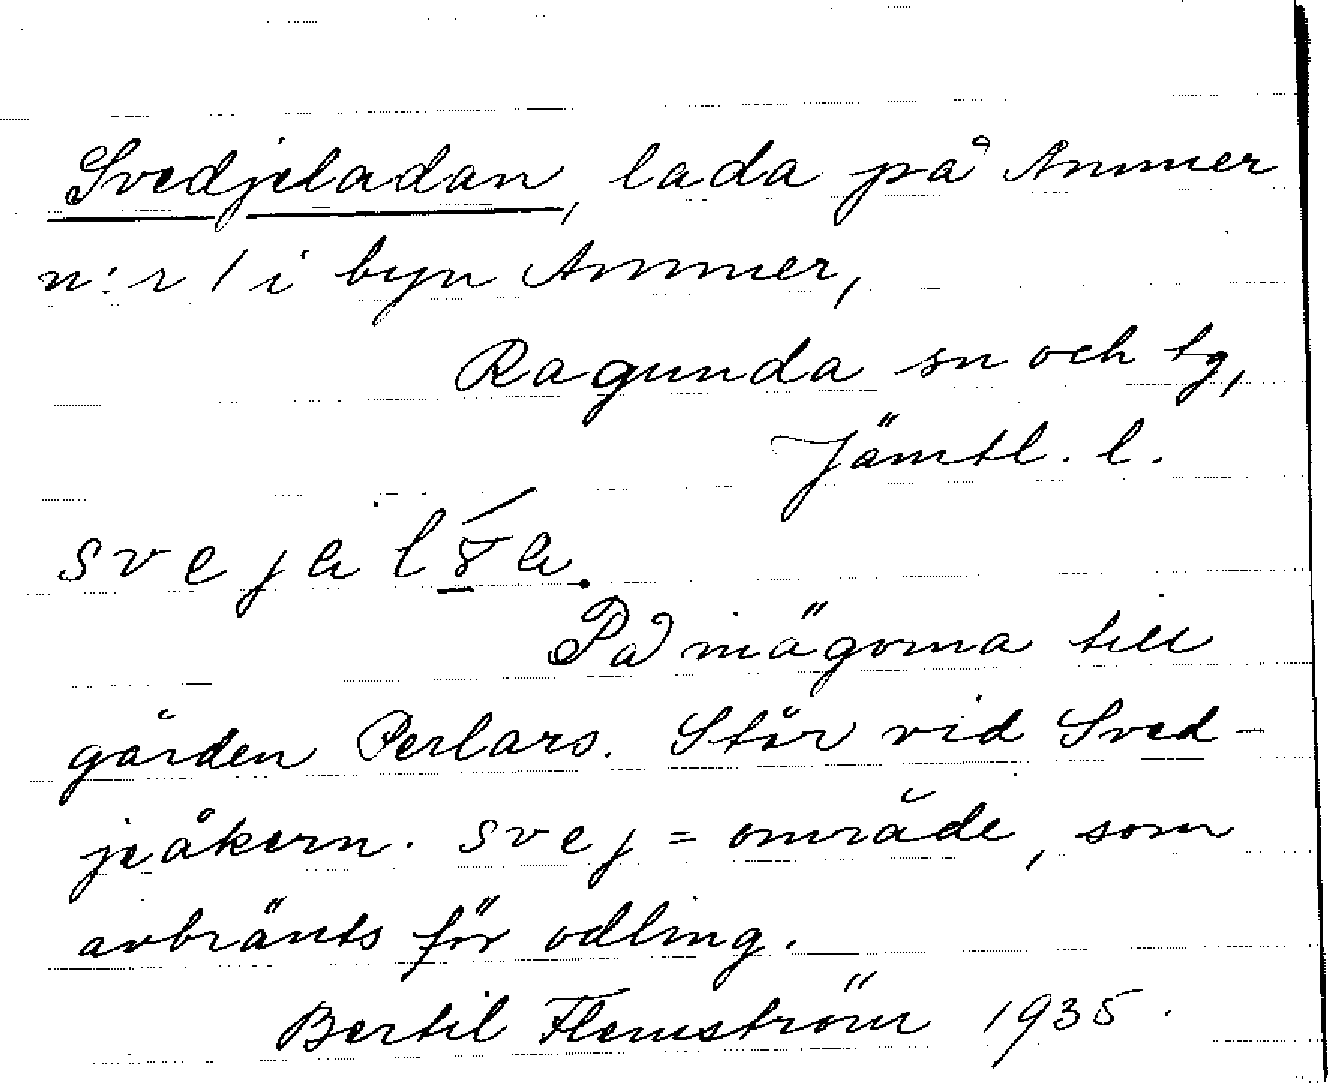 Svedjeladan, lada på Ammer
n:r 1 i byn Ammer,
Ragunda sn och tg,
Jämtl. l.
På inägorna till
gården Perlars. Står vid Sved-
jeåkern. svej = område, som
avbränts för odling.
Bertil Flemström 1935.